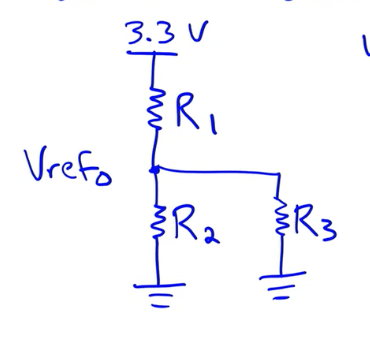 3.3 V
R1
Vref0
R2
R3